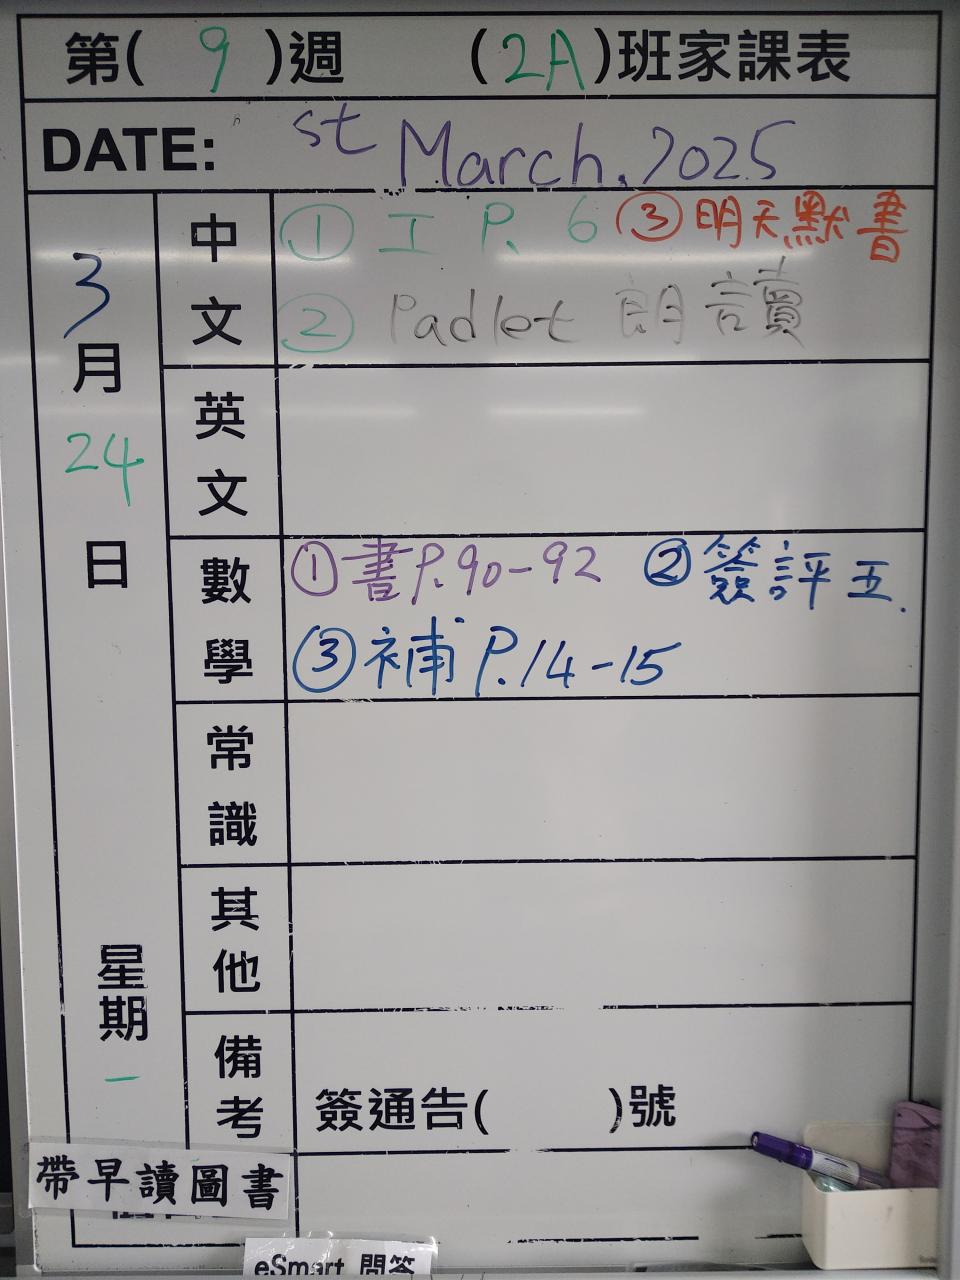 第( 9 )週 (2A)班家課表
DATE: st March. 2025
3月24日 星期一
中文
① 工 P. 6 ③ 明天默書
② Padlet 朗讀
英文
數學
① 書 P. 90-92 ② 簽評五.
③ 補 P. 14-15
常識
其他
備考
簽通告( )號
帶早讀圖書
eSmart 問答